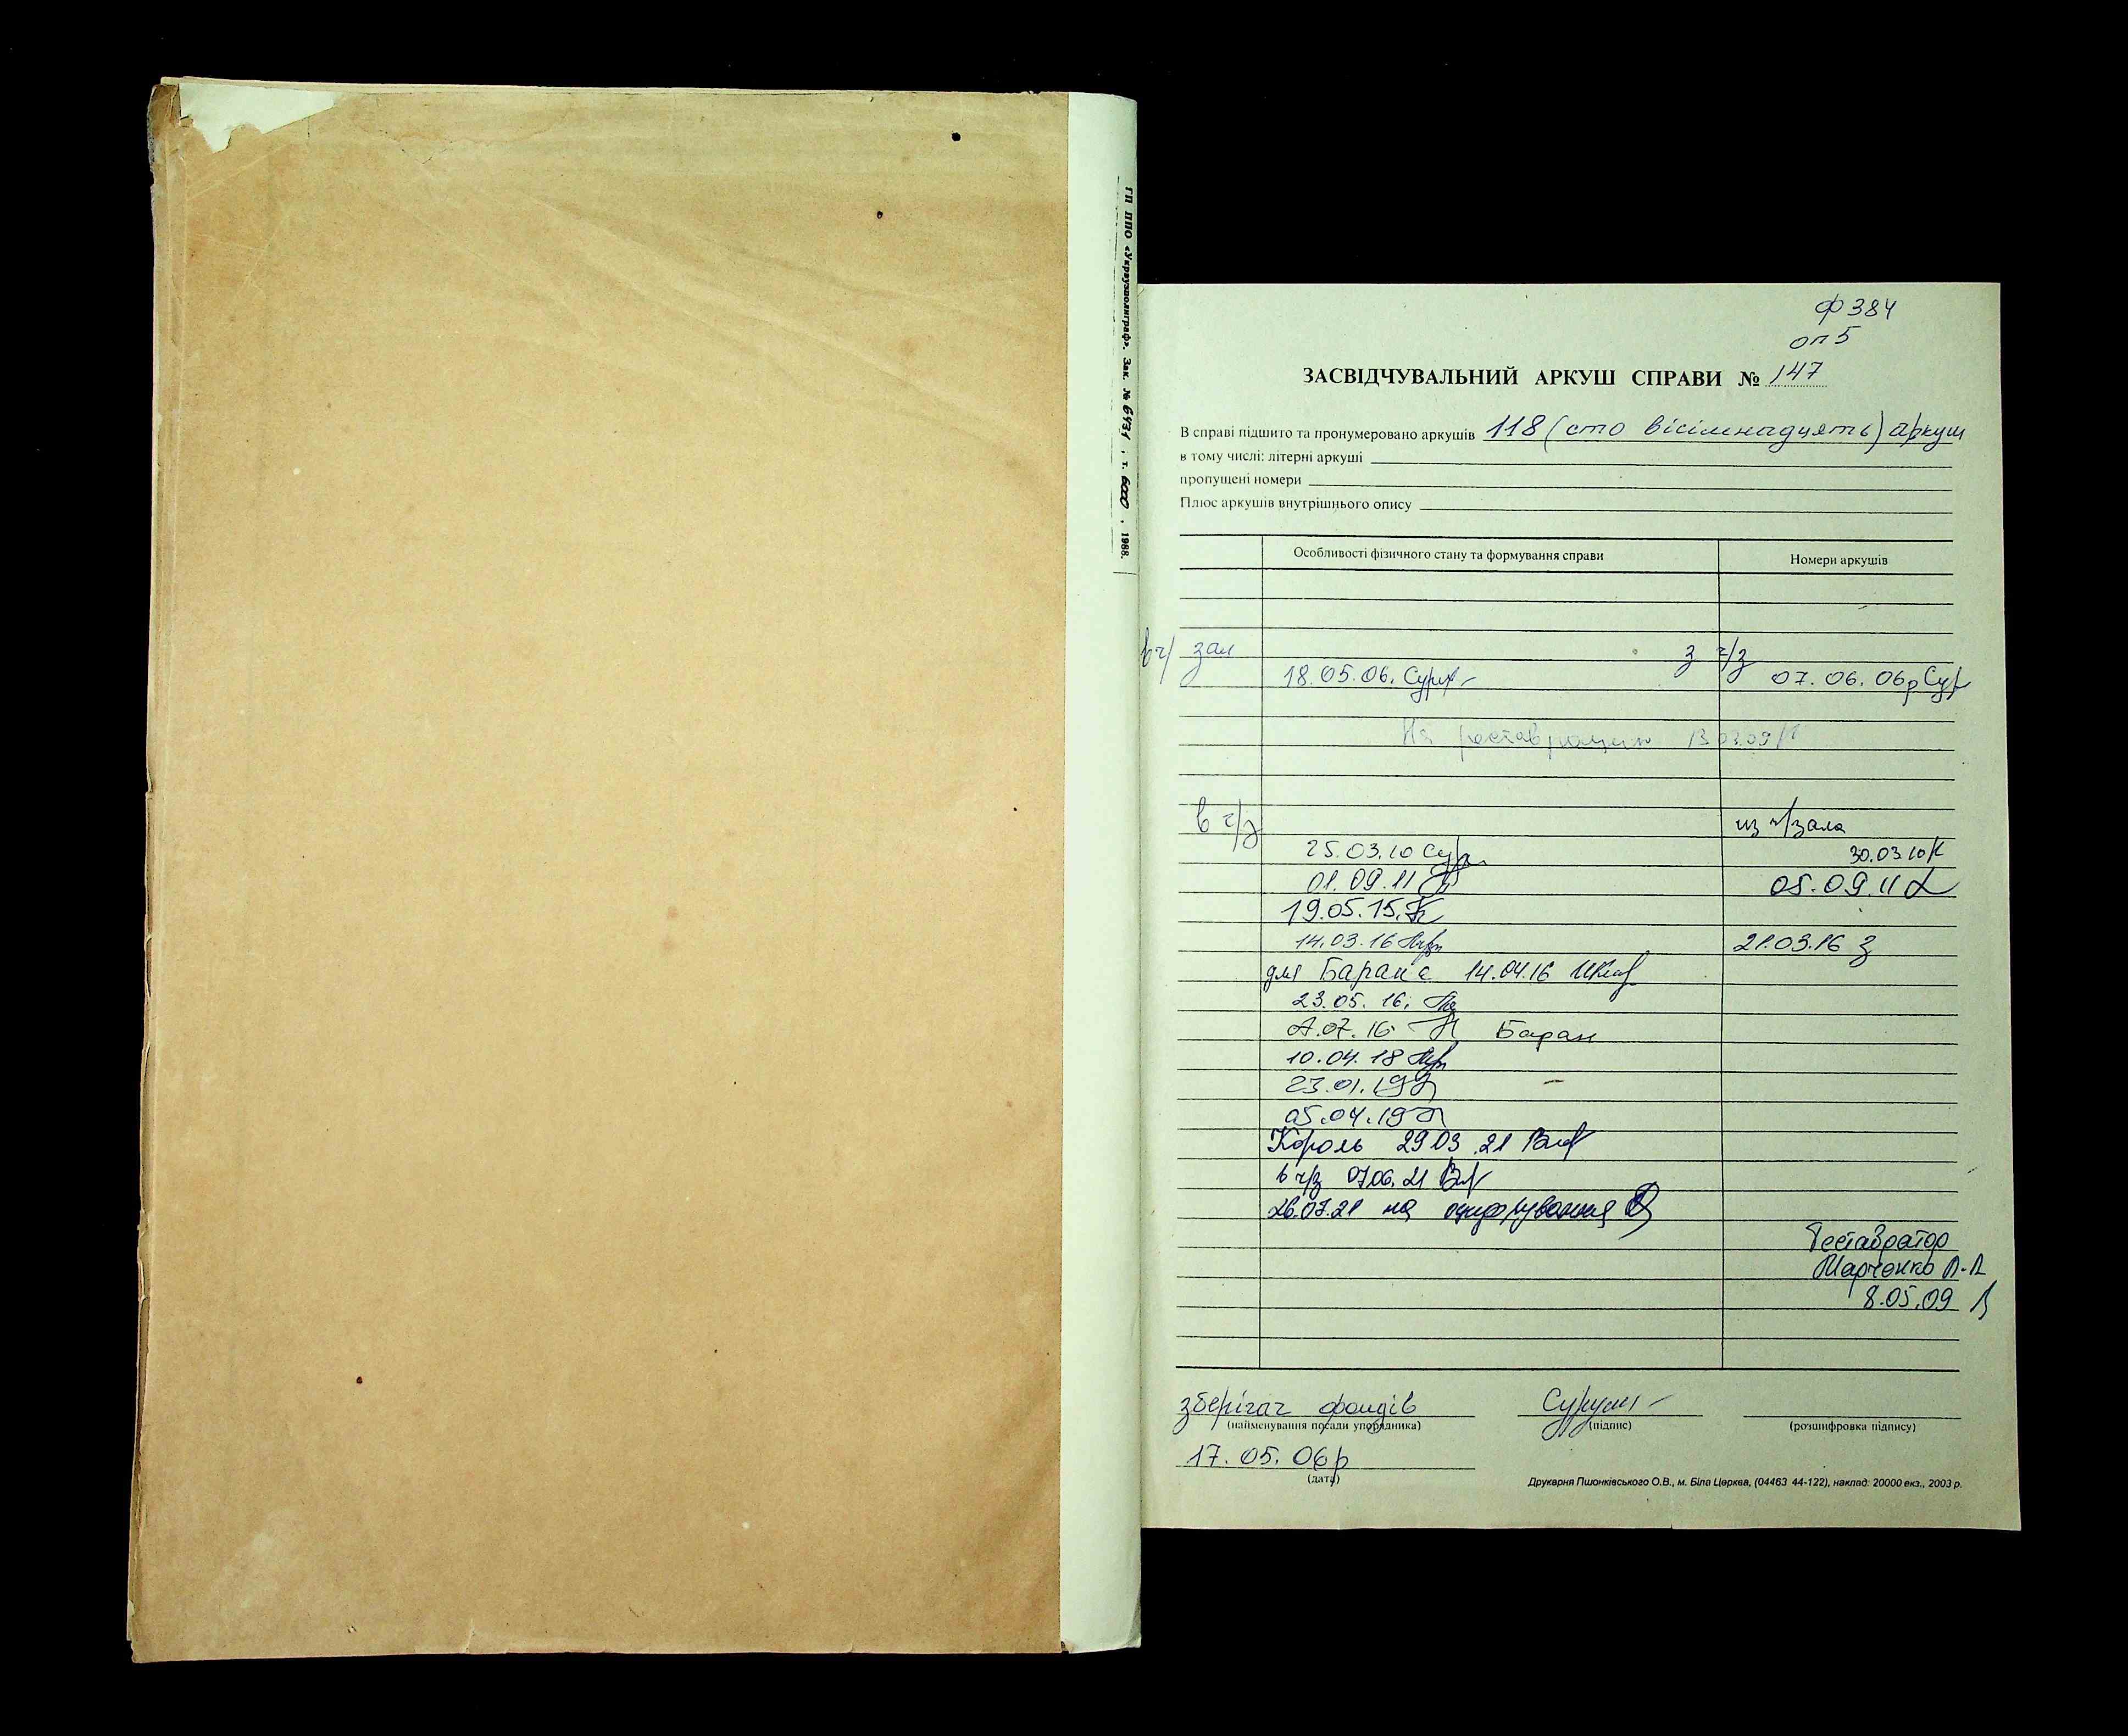 ГП ППО «Укрвузполиграф». Зак. № 6431, т. 6000, 1988.
Ф 384
оп 5
ЗАСВІДЧУВАЛЬНИЙ АРКУШ СПРАВИ № 147
В справі підшито та пронумеровано аркушів 118 (сто вісімнадцять) аркуш
в тому числі: літерні аркуші
пропущені номери
Плюс аркушів внутрішнього опису
Особливості фізичного стану та формування справи Номери аркушів
в ч/ зал з ч/з
18.05.06. 07.06.06р
На реставрацию 13.03.09
в ч/з из ч/зала
25.03.10 30.03.10
01.09.11 05.09.11
19.05.15.
14.03.16 21.03.16
для 14.04.16
23.05.16.
07.16 Баран
10.04.18
23.01.19
05.04.19
Король 29 03 .21
в ч/з 07.06.21
26.07.21 на оцифрування
Реставратор
Марченко
8.05.09
зберігач фондів
(найменування посади упорядника) (підпис) (розшифровка підпису)
17.05.06р
(дата)
Друкарня Пшонківського О.В., м. Біла Церква, (04463 44-122), наклад 20000 екз., 2003 р.